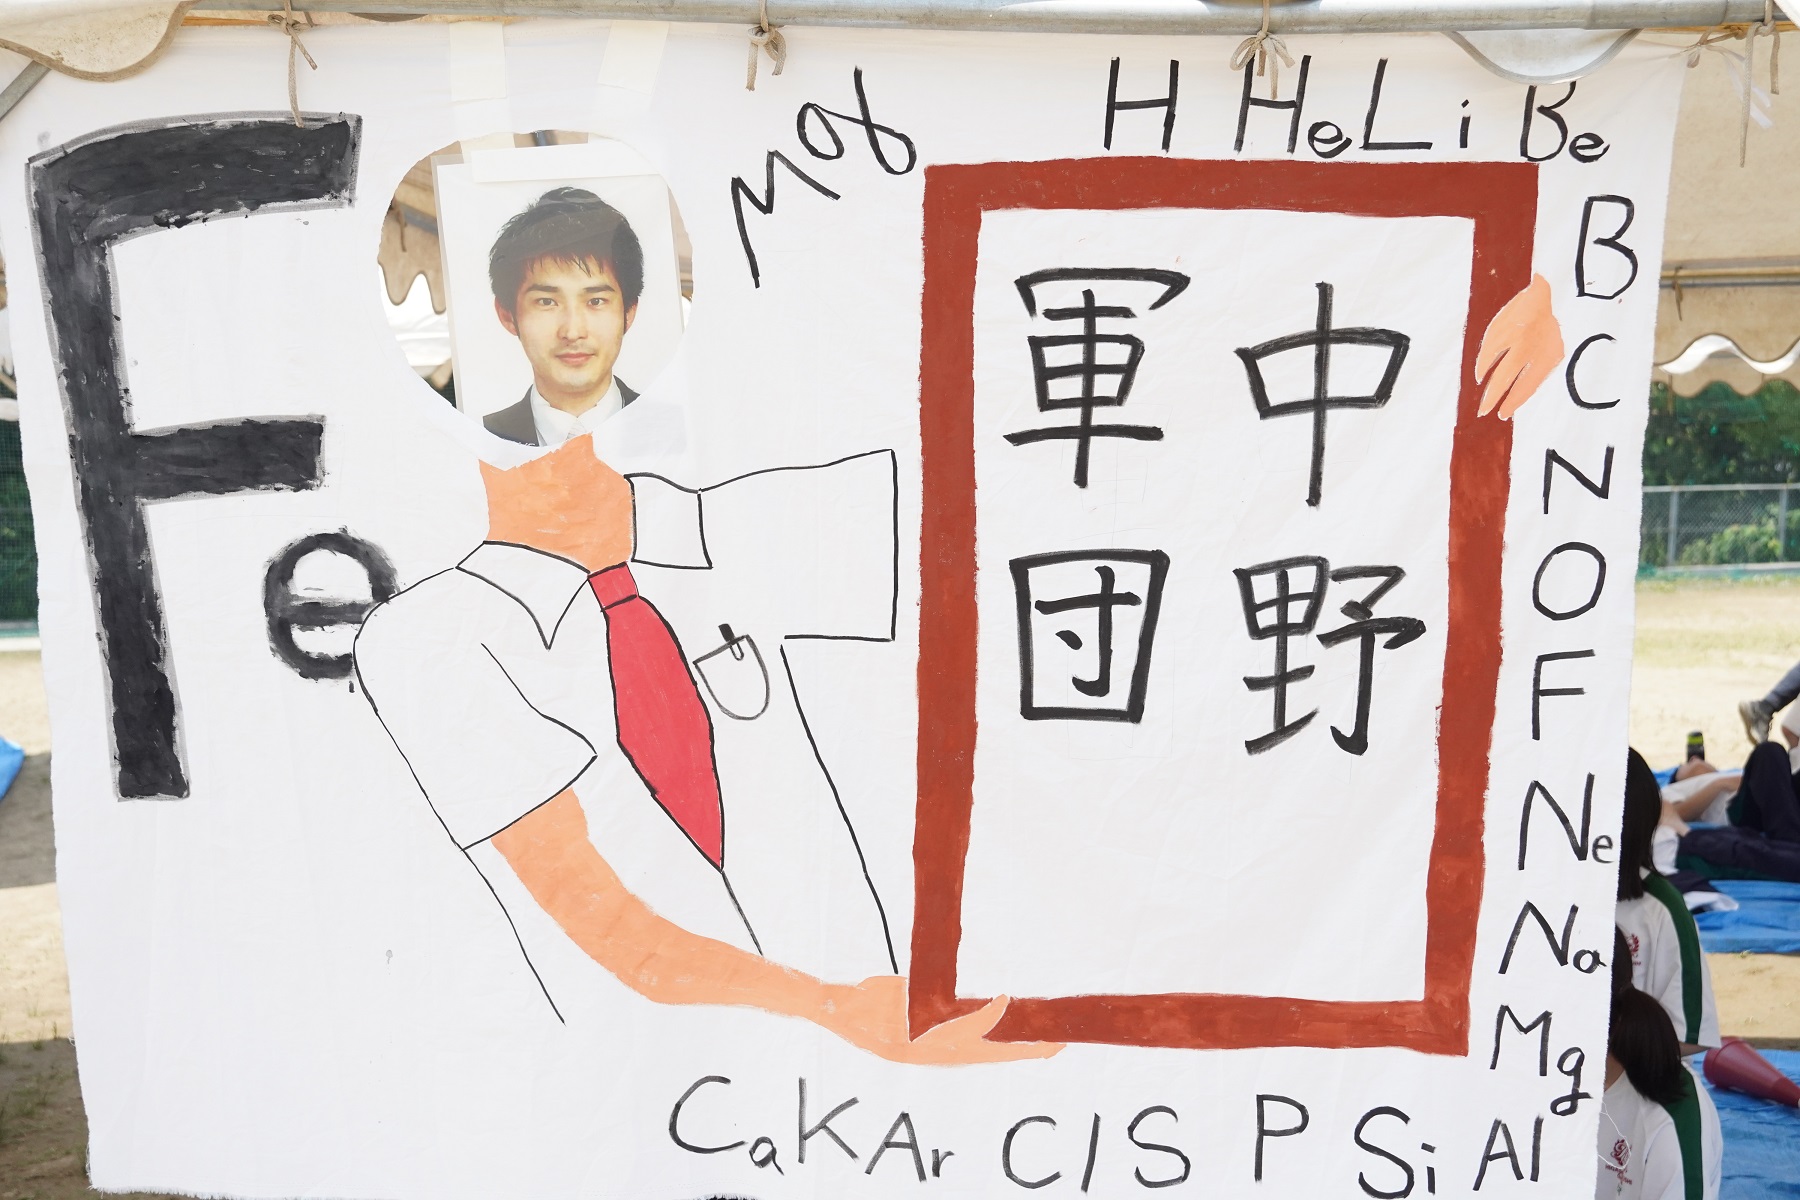 Fe
H He Li Be
中野
軍団
B
C
N
O
F
Ne
Na
Mg
Ca K Ar Cl S P Si Al